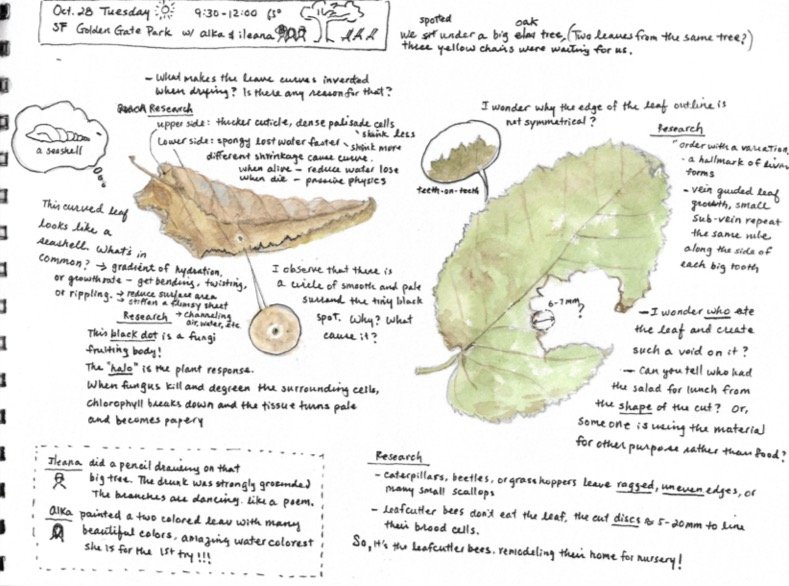 Oct. 28 Tuesday 9:30-12:00 65°
SF Golden Gate Park w/ alka & ileana
spotted oak
We sit under a big elm tree, (Two leaves from the same tree?)
three yellow chairs were waiting for us.
- What makes the leave curves inverted
when drying? Is there any reason for that?
Research
upper side: thicker cuticle, dense palisade cells
shink less
Lower side: spongy lost water faster
shink more
different shrinkage cause curve.
when alive - reduce water lose
when die - passive physics
a seashell
This curved leaf
looks like a
seashell. What's in
common? → gradient of hydration,
or growth rate - get bending, twisting,
or rippling. → reduce surface area
→ stiffen a flimsy sheet
→ channeling
air, water, etc.
I observe that there is
a circle of smooth and pale
surround the tiny black
spot. Why? What
cause it?
Research
This black dot is a fungi
fruiting body!
The "halo" is the plant response.
When fungus kill and degreen the surrounding cells,
chlorophyll breaks down and the tissue turns pale
and becomes papery
I wonder why the edge of the leaf outline is
not symmetrical?
teeth-on-teeth
Research
"order with a variation,
- a hallmark of living
forms
- vein guided leaf
growth, small
sub-vein repeat
the same rule
along the side of
each big tooth
6-7mm
?
- I wonder who ate
the leaf and create
such a void on it?
- Can you tell who had
the salad for lunch from
the shape of the cut? Or,
someone is using the material
for other purpose rather than food?
Ileana did a pencil drawing on that
big tree. The drunk was strongly grounded
The branches are dancing like a poem.
alka painted a two colored leav with many
beautiful colors, amazing watercolorest
she is for the 1st try!!!
Research
- caterpillars, beetles, or grasshoppers leave ragged, uneven edges, or
many small scallops
- leafcutter bees don't eat the leaf, the cut discs ≈ 5-20mm to line
their brood cells.
So, it's the leafcutter bees. remodeling their home for nursery!